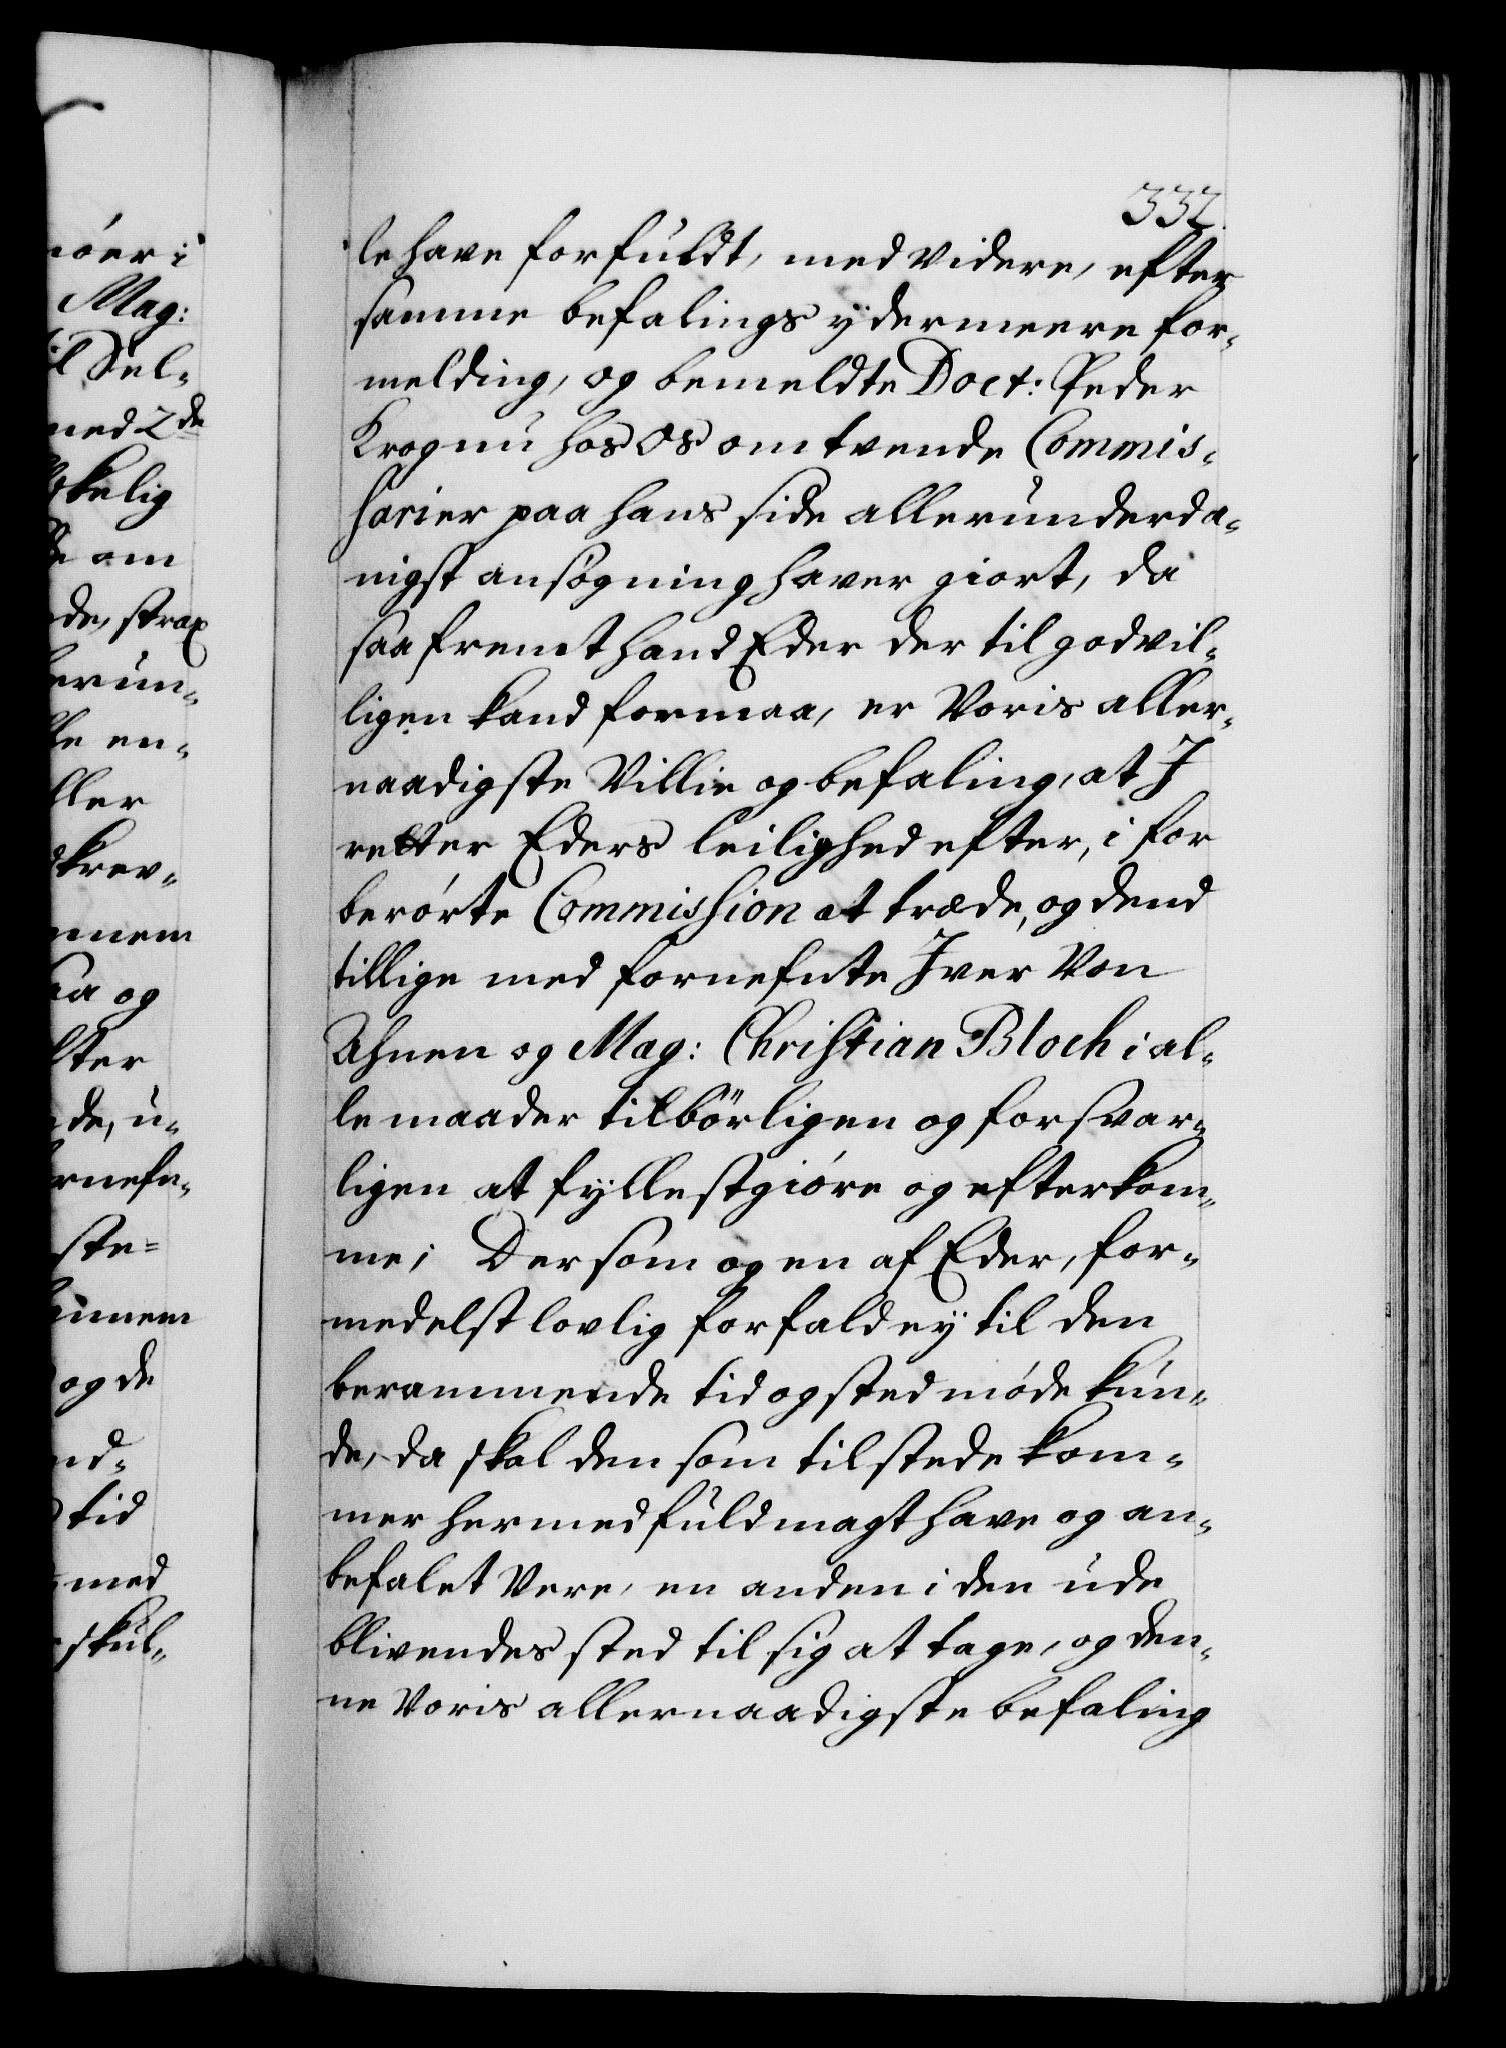 332.
le have forfuldt, med videre, efter
samme befalings ydermeere for-
melding, og bemeldte Doct: Peder
Krog nu hos os om tvende Commis-
sarier paa hans side allerunderda-
nigst ansøgning haver giort, da
saafremt hand Eder der til godvil-
ligen kand formaa, er Voris aller-
naadigste Villie og befaling, at I
retter Eders leilighed efter, i for
berørte Commission at træde, og dend
tillige med fornefnte Iver Von
Ahnen og Mag: Christian Bloch i al-
le maader tilbørligen og forsvar-
ligen at fyllestgiøre og efterkom-
me; Dersom og en af Eder, for-
medelst lovlig forfald ey til den
berammende tid og sted møde kun-
de, da skal den som tilstede kom-
mer hermed fuldmagt have og an-
befalet Vere, en anden i den ude
blivendes sted til sig at tage, og den-
ne Voris allernaadigste befaling
Mag:
med 2de
kelig
om
de, strax
erun-
en-
ller
krev-
og
de, u-
ste=
og de
tid
med
skul-